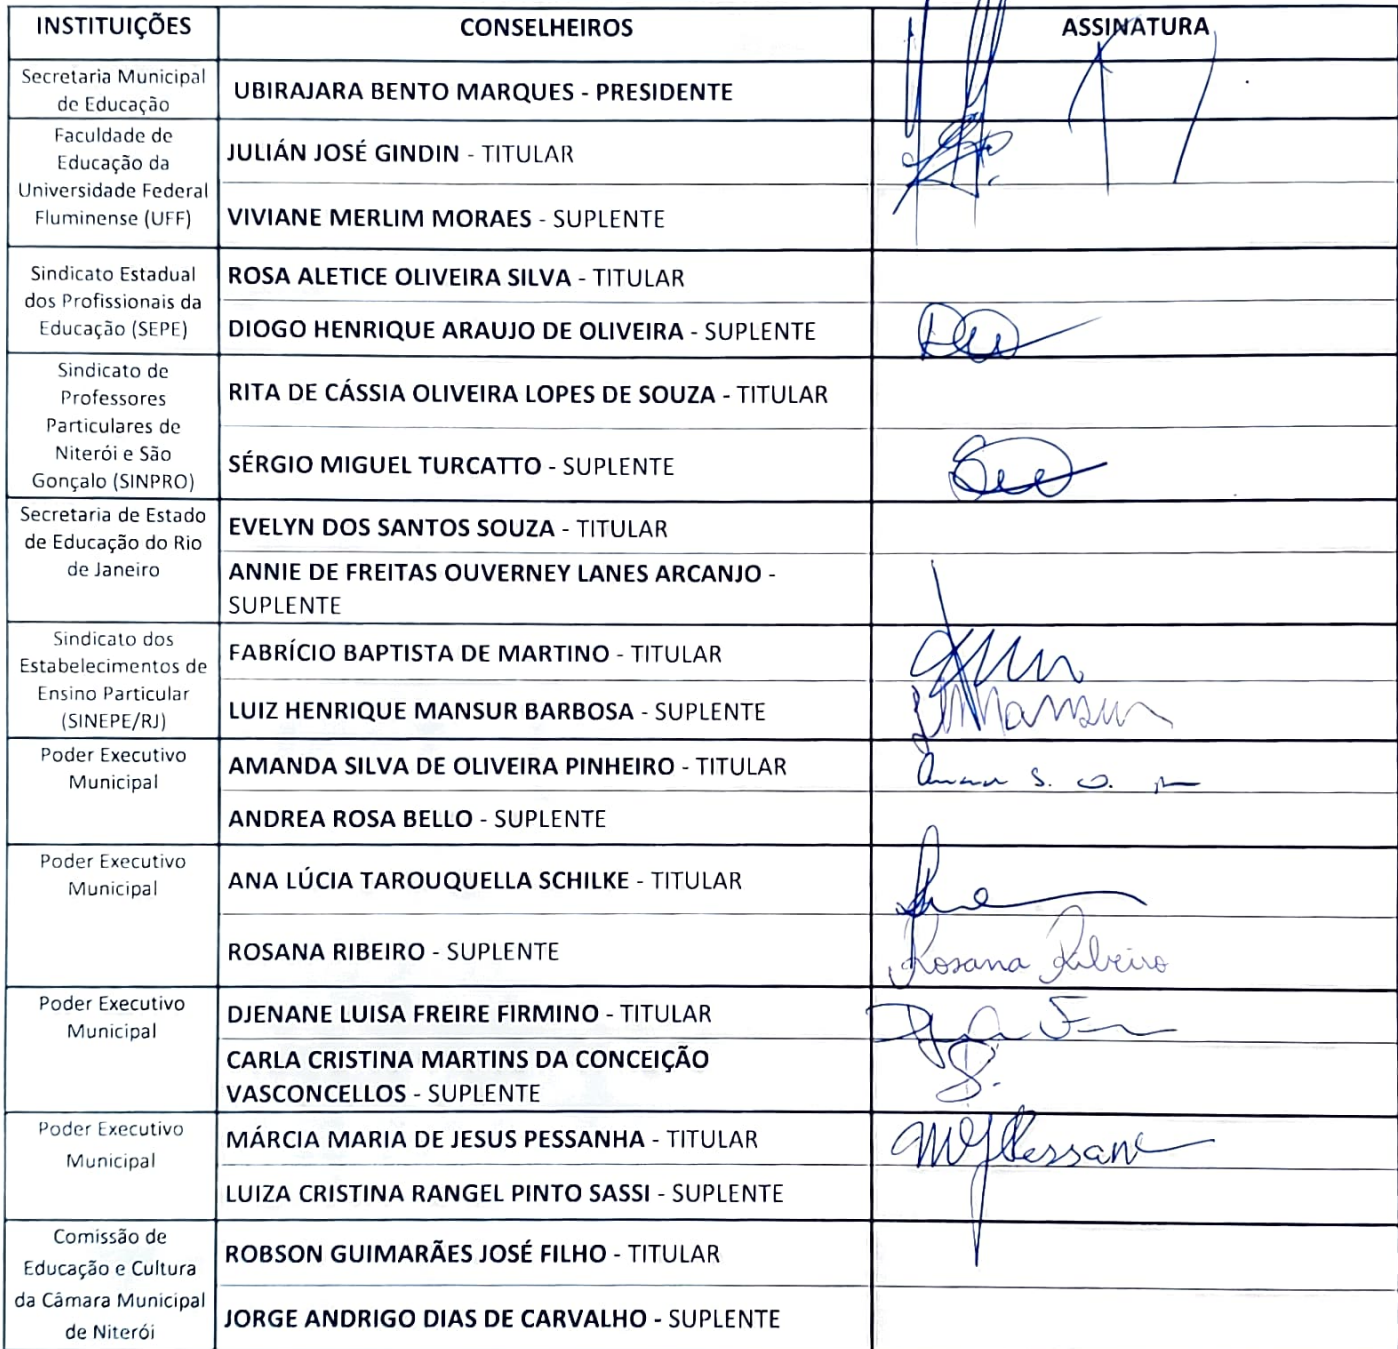 INSTITUIÇÕES
CONSELHEIROS
ASSINATURA
Secretaria Municipal
de Educação
UBIRAJARA BENTO MARQUES - PRESIDENTE
Faculdade de
Educação da
Universidade Federal
Fluminense (UFF)
JULIÁN JOSÉ GINDIN - TITULAR
VIVIANE MERLIM MORAES - SUPLENTE
Sindicato Estadual
dos Profissionais da
Educação (SEPE)
ROSA ALETICE OLIVEIRA SILVA - TITULAR
DIOGO HENRIQUE ARAUJO DE OLIVEIRA - SUPLENTE
Sindicato de
Professores
Particulares de
Niterói e São
Gonçalo (SINPRO)
RITA DE CÁSSIA OLIVEIRA LOPES DE SOUZA - TITULAR
SÉRGIO MIGUEL TURCATTO - SUPLENTE
Secretaria de Estado
de Educação do Rio
de Janeiro
EVELYN DOS SANTOS SOUZA - TITULAR
ANNIE DE FREITAS OUVERNEY LANES ARCANJO -
SUPLENTE
Sindicato dos
Estabelecimentos de
Ensino Particular
(SINEPE/RJ)
FABRÍCIO BAPTISTA DE MARTINO - TITULAR
LUIZ HENRIQUE MANSUR BARBOSA - SUPLENTE
Mansur
Poder Executivo
Municipal
AMANDA SILVA DE OLIVEIRA PINHEIRO - TITULAR
S. O.
ANDREA ROSA BELLO - SUPLENTE
Poder Executivo
Municipal
ANA LÚCIA TAROUQUELLA SCHILKE - TITULAR
ROSANA RIBEIRO - SUPLENTE
Rosana Ribeiro
Poder Executivo
Municipal
DJENANE LUISA FREIRE FIRMINO - TITULAR
CARLA CRISTINA MARTINS DA CONCEIÇÃO
VASCONCELLOS - SUPLENTE
Poder Executivo
Municipal
MÁRCIA MARIA DE JESUS PESSANHA - TITULAR
LUIZA CRISTINA RANGEL PINTO SASSI - SUPLENTE
Comissão de
Educação e Cultura
da Câmara Municipal
de Niterói
ROBSON GUIMARÃES JOSÉ FILHO - TITULAR
JORGE ANDRIGO DIAS DE CARVALHO - SUPLENTE